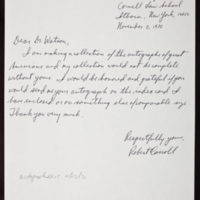 Cornell Law School
Ithaca, New York, 14850
November 2, 1970
Dear Dr. Watson,
I am making a collection of the autographs of great
Americans and my collection would not be complete
without yours. I would be honored and grateful if you
would send me your autograph on the index card I
have enclosed or on something else of comparable size.
Thank you very much.
Respectfully yours,
Robert Carroll
autographics